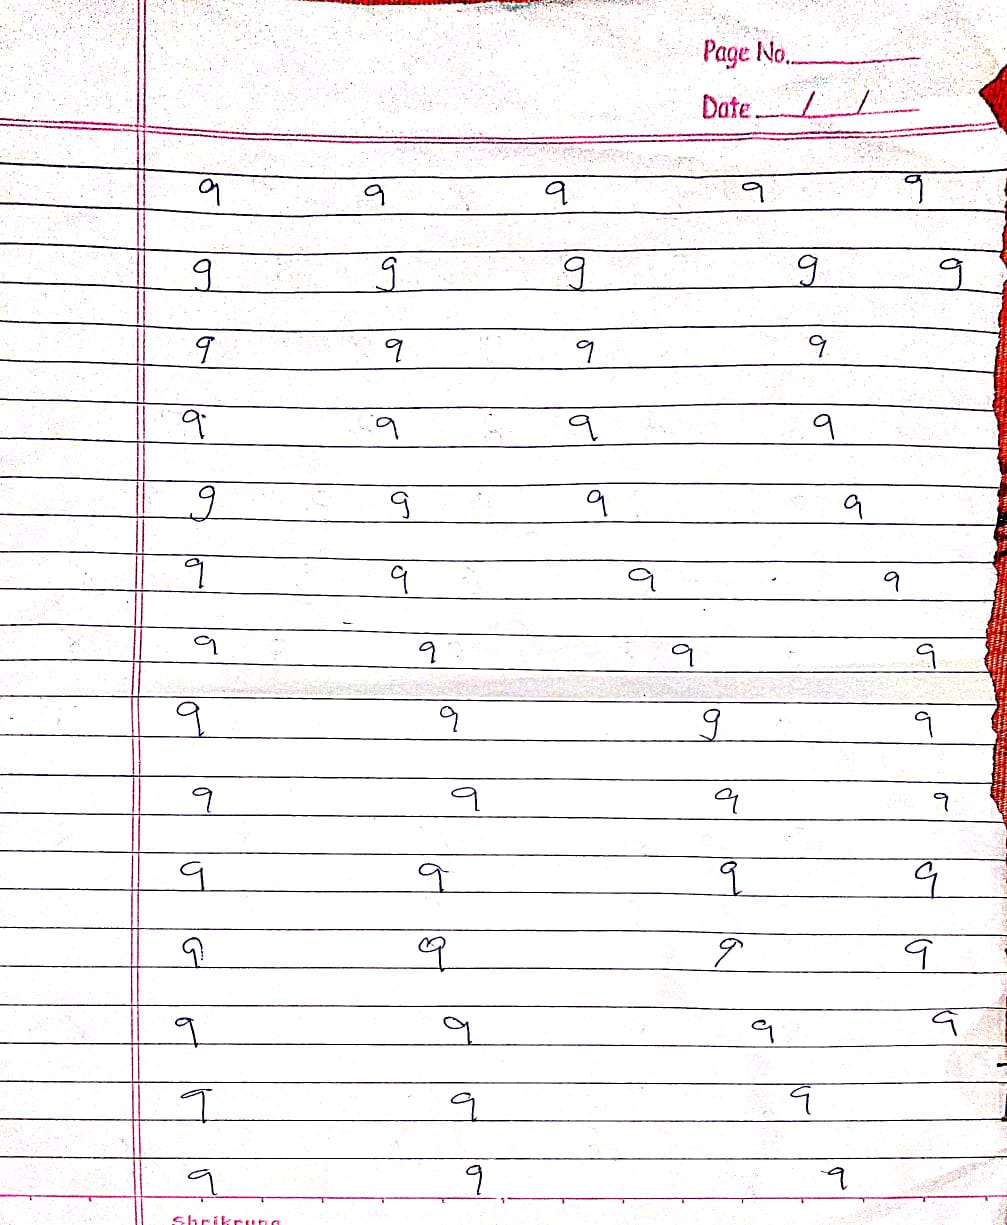 Page No.
Date / /
9 9 9 9 9
9 9 9 9 9
9 9 9 9
9 9 9 9
9 9 9 9
9 9 9 9
9 9 9 9
9 9 9 9
9 9 9 9
9 9 9 9
9 9 9 9
9 9 9 9
9 9 9
9 9 9